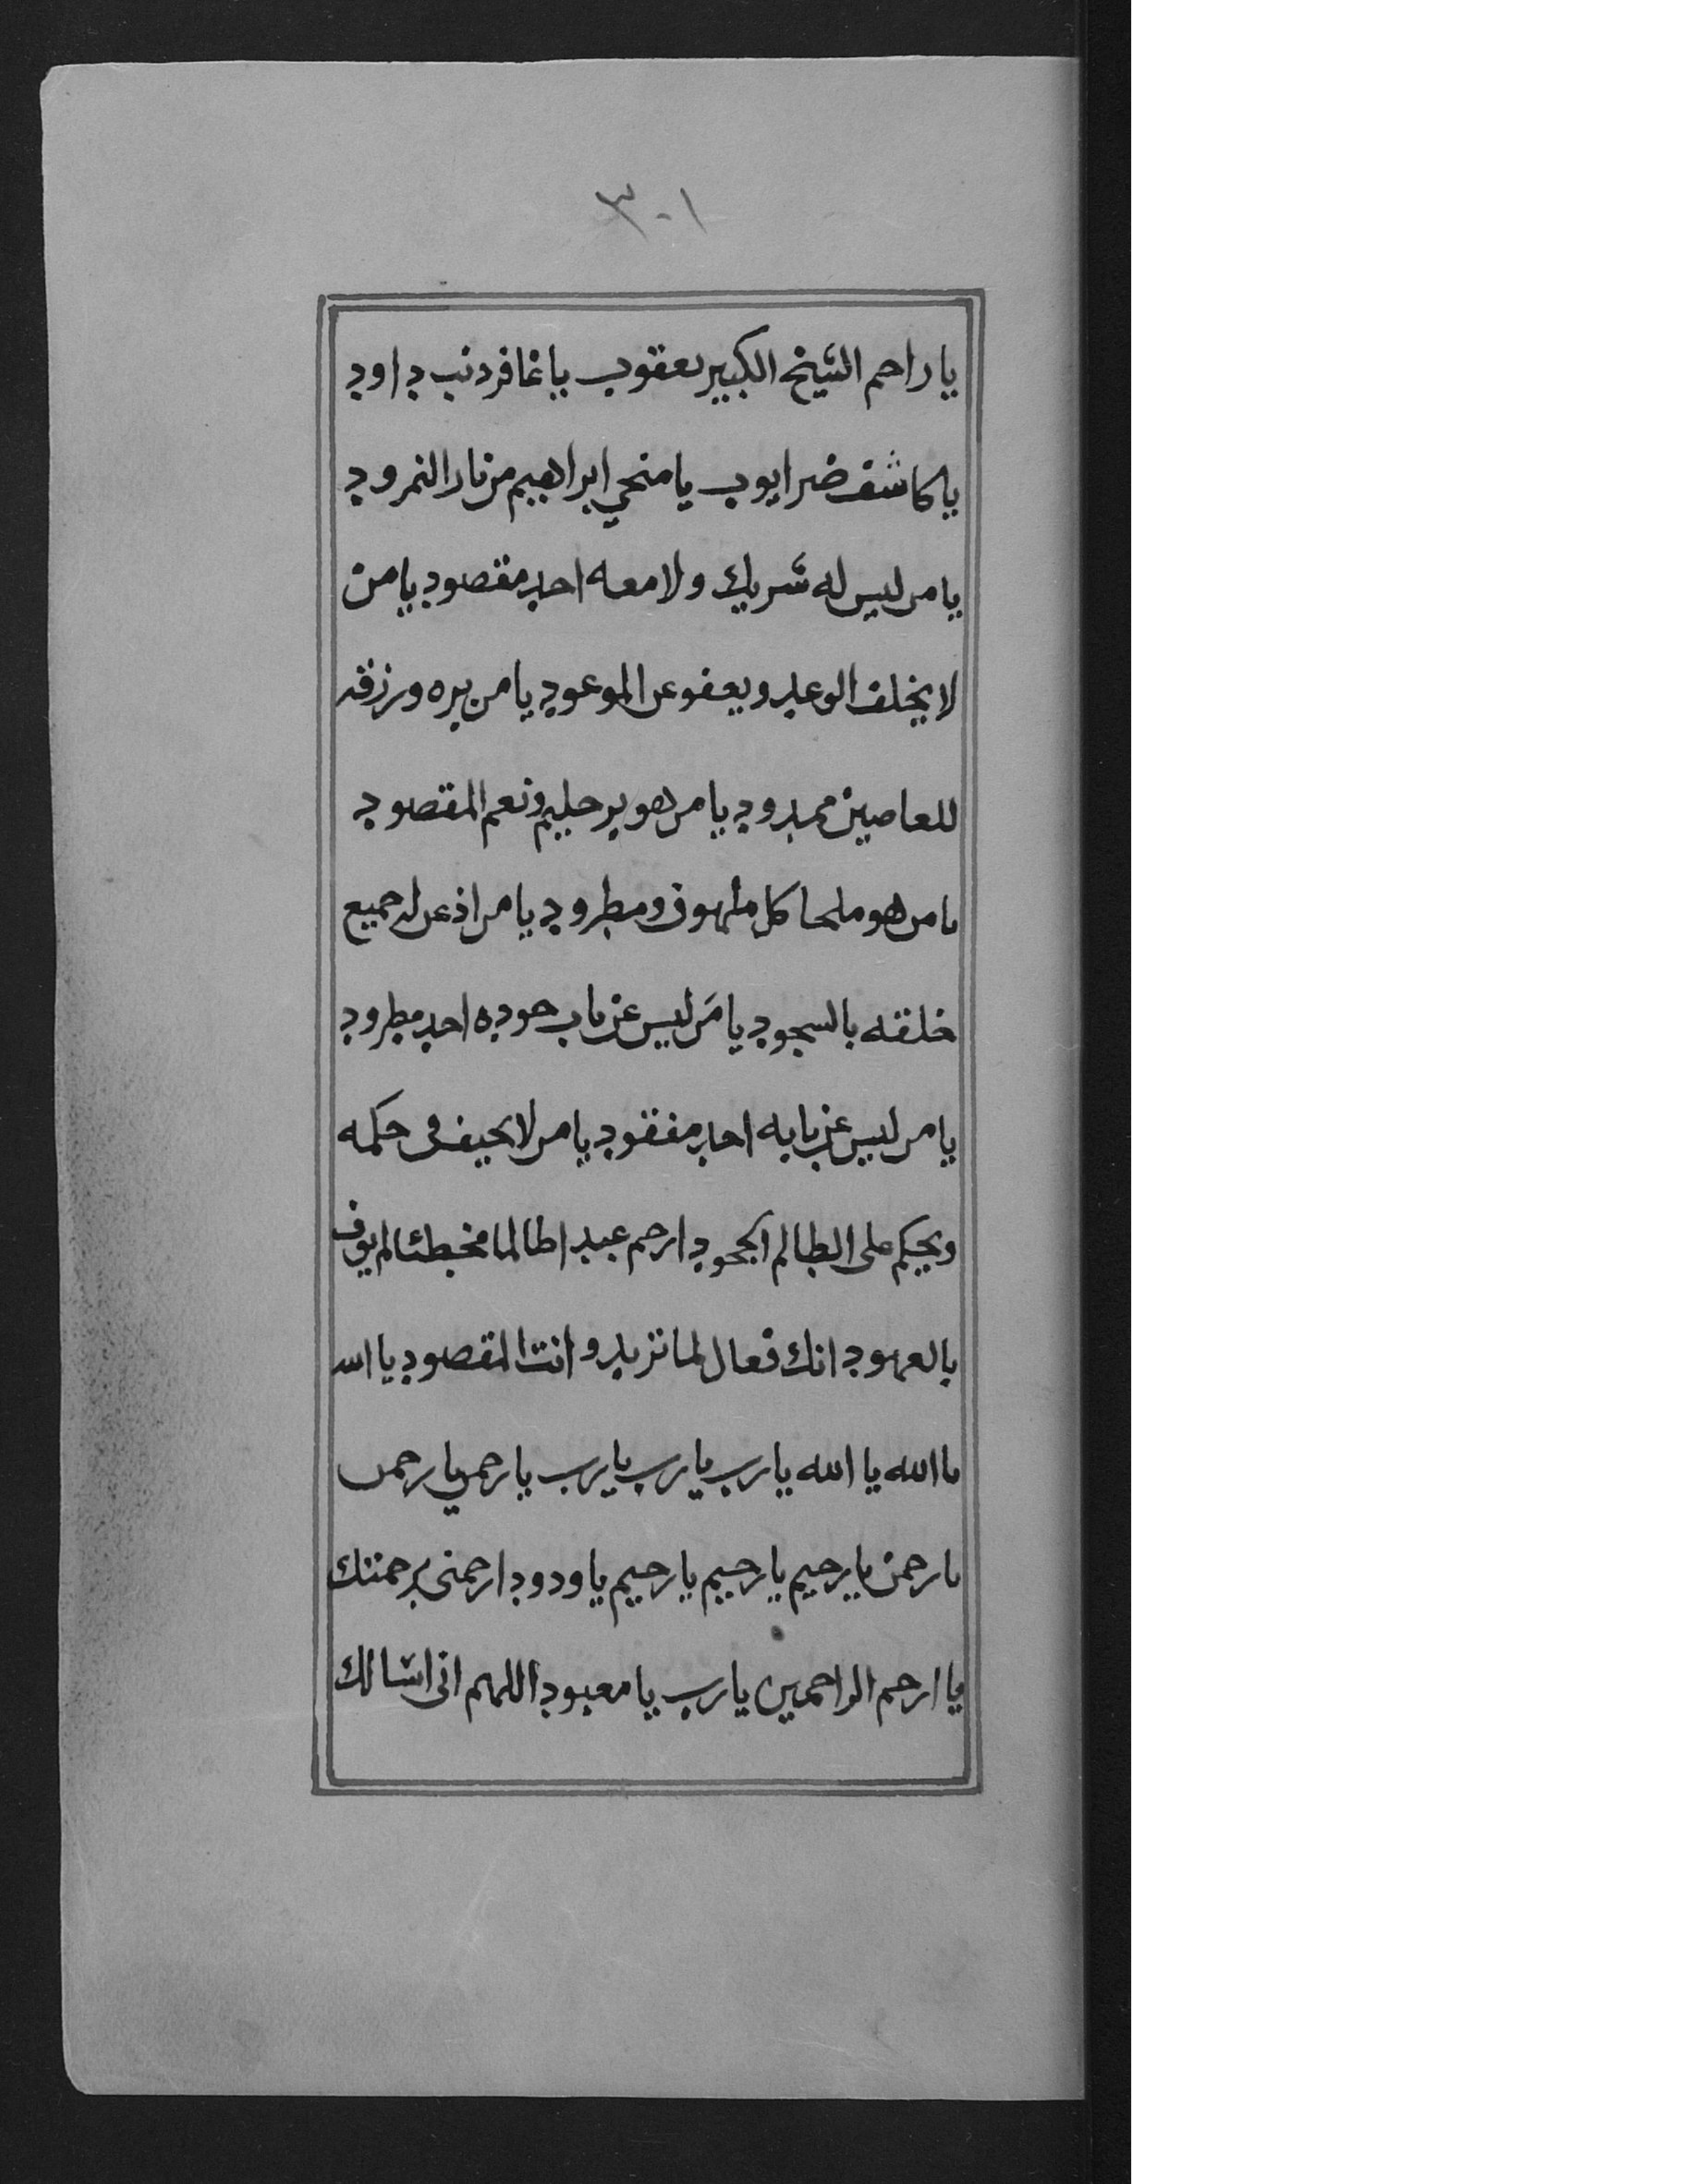 ١٠٣
يا راحم الشيخ الكبير يعقوب يا غافر ذنب داود
يا كاشف ضر ايوب يا منجي ابراهيم من نار النمرود
يا من ليس له شريك ولا معه احد مقصود يا من
لا يخلف الوعد ويعفو عن الموعود يا من بره ورزقه
للعاصين ممدود يا من هو بر حليم ونعم المقصود
يا من هو ملجا كل ملهوف ومطرود يا من اذعن له جميع
خلقه بالسجود يا مَن ليس عن باب جوده احد مطرود
يا من ليس عن بابه احد مفقود يا من لا يحيف في حكمه
ويحكم على الظالم الجحود ارحم عبدا ظالما مخطئا لم يوف
بالعهود انك فعال لما تريد وانت المقصود يا الله
يا الله يا الله يا رب يا رب يا رب يا رحمن يا رحمن
يا رحمن يا رحيم يا رحيم يا رحيم يا ودود ارحمني برحمتك
يا ارحم الراحمين يا رب يا معبود اللهم اني اسالك